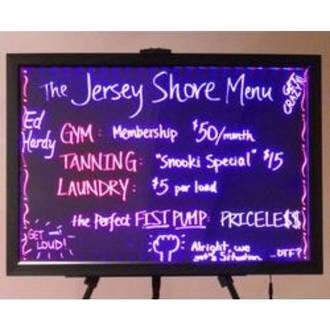 The Jersey Shore Menu
GET CRAZY
Ed Hardy
GYM: Membership $50/month
TANNING: "Snooki Special" $15
LAUNDRY: $5 per load
the perfect FIST PUMP: PRICELE$$
GET LOUD!
Alright, we
got a Situation
DTF?